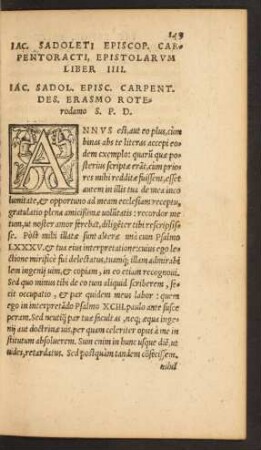 149
IAC. SADOLETI EPISCOP. CAR-
PENTORACTI, EPISTOLARVM
LIBER IIII.
IAC. SADOL. EPISC. CARPENT.
DES. ERASMO ROTE-
rodamo S. P. D.
ANNVS est, aut eo plus, cùm
binas abs te literas accepi eo-
dem exemplo: quarū quæ po-
sterius scriptæ erāt, cùm prio-
res mihi redditæ fuissent, esset
autem in illis tua de mea inco
lumitate, & opportuno ad meam ecclesiam receptu,
gratulatio plena amicissimæ volūtatis: recordor me
tum, ut noster amor ferebat, diligēter tibi rescripsis-
se. Pòst mihi illatæ sunt alteræ unà cum Psalmo
LXXXV. & tua eius interpretatione: cuius ego le-
ctione mirificè fui delectatus, tuamq́; illam admirabi
lem ingenij uim, & copiam, in eo etiam recognoui.
Sed quo minus tibi de eo tum aliquid scriberem, fe-
cit occupatio, & par quidem meus labor: quem
ego in interpretādo Psalmo XCIII. paulo ante susce
peram. Sed neutiq̃ par tua facultas, neq; æqua inge-
nij aut doctrinæ uis, per quam celeriter opus à me in
stitutum absoluerem. Sum enim in hunc usque diē, ut
uides, retardatus. Sed postquàm tandem cōfecissem,
nihil